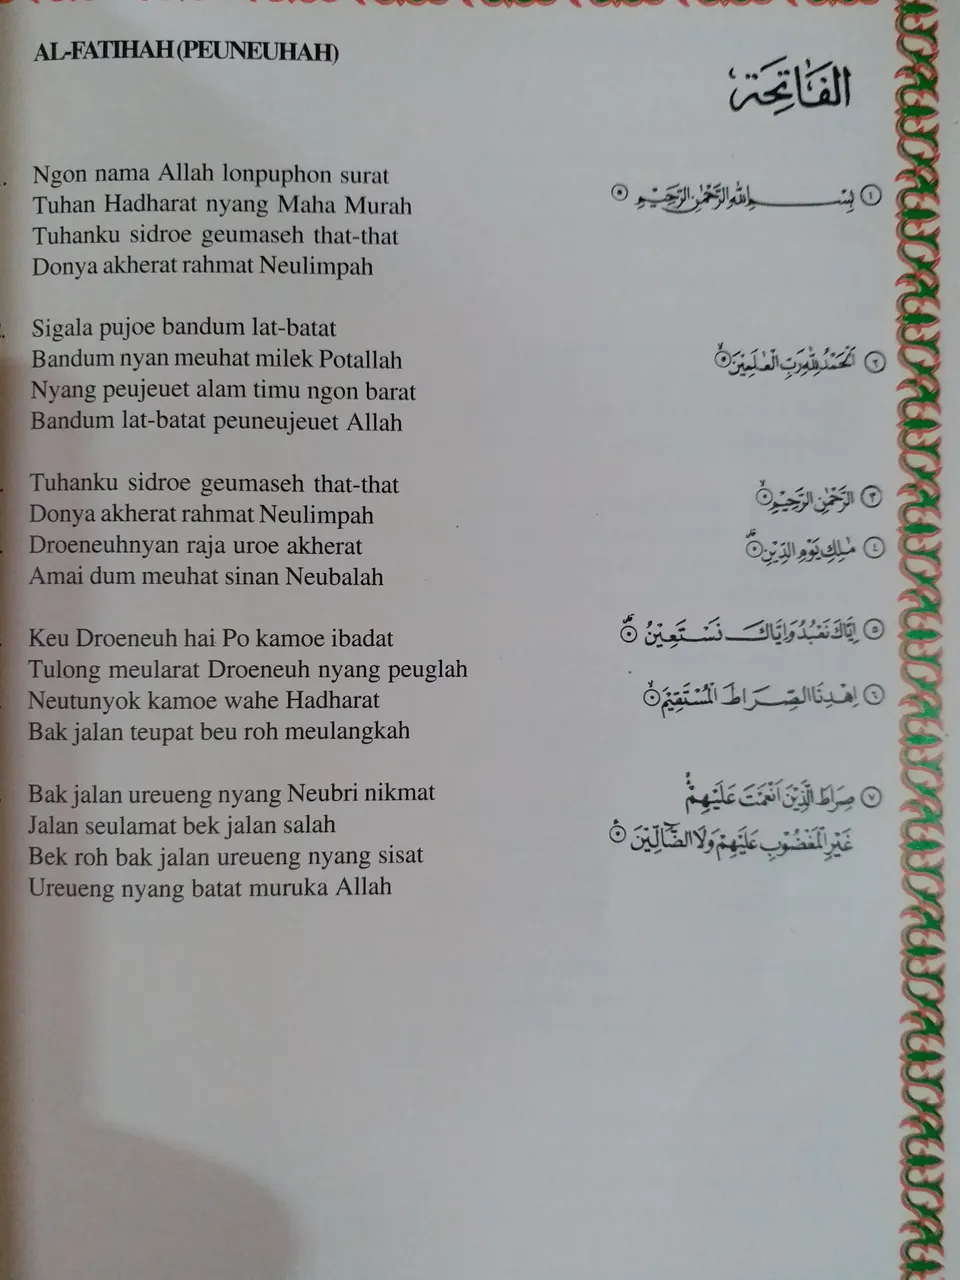 AL-FATIHAH (PEUNEUHAH)
الفَاتِحَة
Ngon nama Allah lonpuphon surat
Tuhan Hadharat nyang Maha Murah
Tuhanku sidroe geumaseh that-that
Donya akherat rahmat Neulimpah
١ بِسْمِ اللهِ الرَّحْمٰنِ الرَّحِيْمِ
Sigala pujoe bandum lat-batat
Bandum nyan meuhat milek Potallah
Nyang peujeuet alam timu ngon barat
Bandum lat-batat peuneujeuet Allah
٢ اَلْحَمْدُ لِلّٰهِ رَبِّ الْعٰلَمِيْنَ
Tuhanku sidroe geumaseh that-that
Donya akherat rahmat Neulimpah
٣ الرَّحْمٰنِ الرَّحِيْمِ
Droeneuhnyan raja uroe akherat
Amai dum meuhat sinan Neubalah
٤ مٰلِكِ يَوْمِ الدِّيْنِ
Keu Droeneuh hai Po kamoe ibadat
Tulong meularat Droeneuh nyang peuglah
٥ اِيَّاكَ نَعْبُدُ وَاِيَّاكَ نَسْتَعِيْنُ
Neutunyok kamoe wahe Hadharat
Bak jalan teupat beu roh meulangkah
٦ اِهْدِنَا الصِّرَاطَ الْمُسْتَقِيْمَ
Bak jalan ureueng nyang Neubri nikmat
Jalan seulamat bek jalan salah
Bek roh bak jalan ureueng nyang sisat
Ureueng nyang batat muruka Allah
٧ صِرَاطَ الَّذِيْنَ اَنْعَمْتَ عَلَيْهِمْ
غَيْرِ الْمَغْضُوْبِ عَلَيْهِمْ وَلَا الضَّآلِّيْنَ